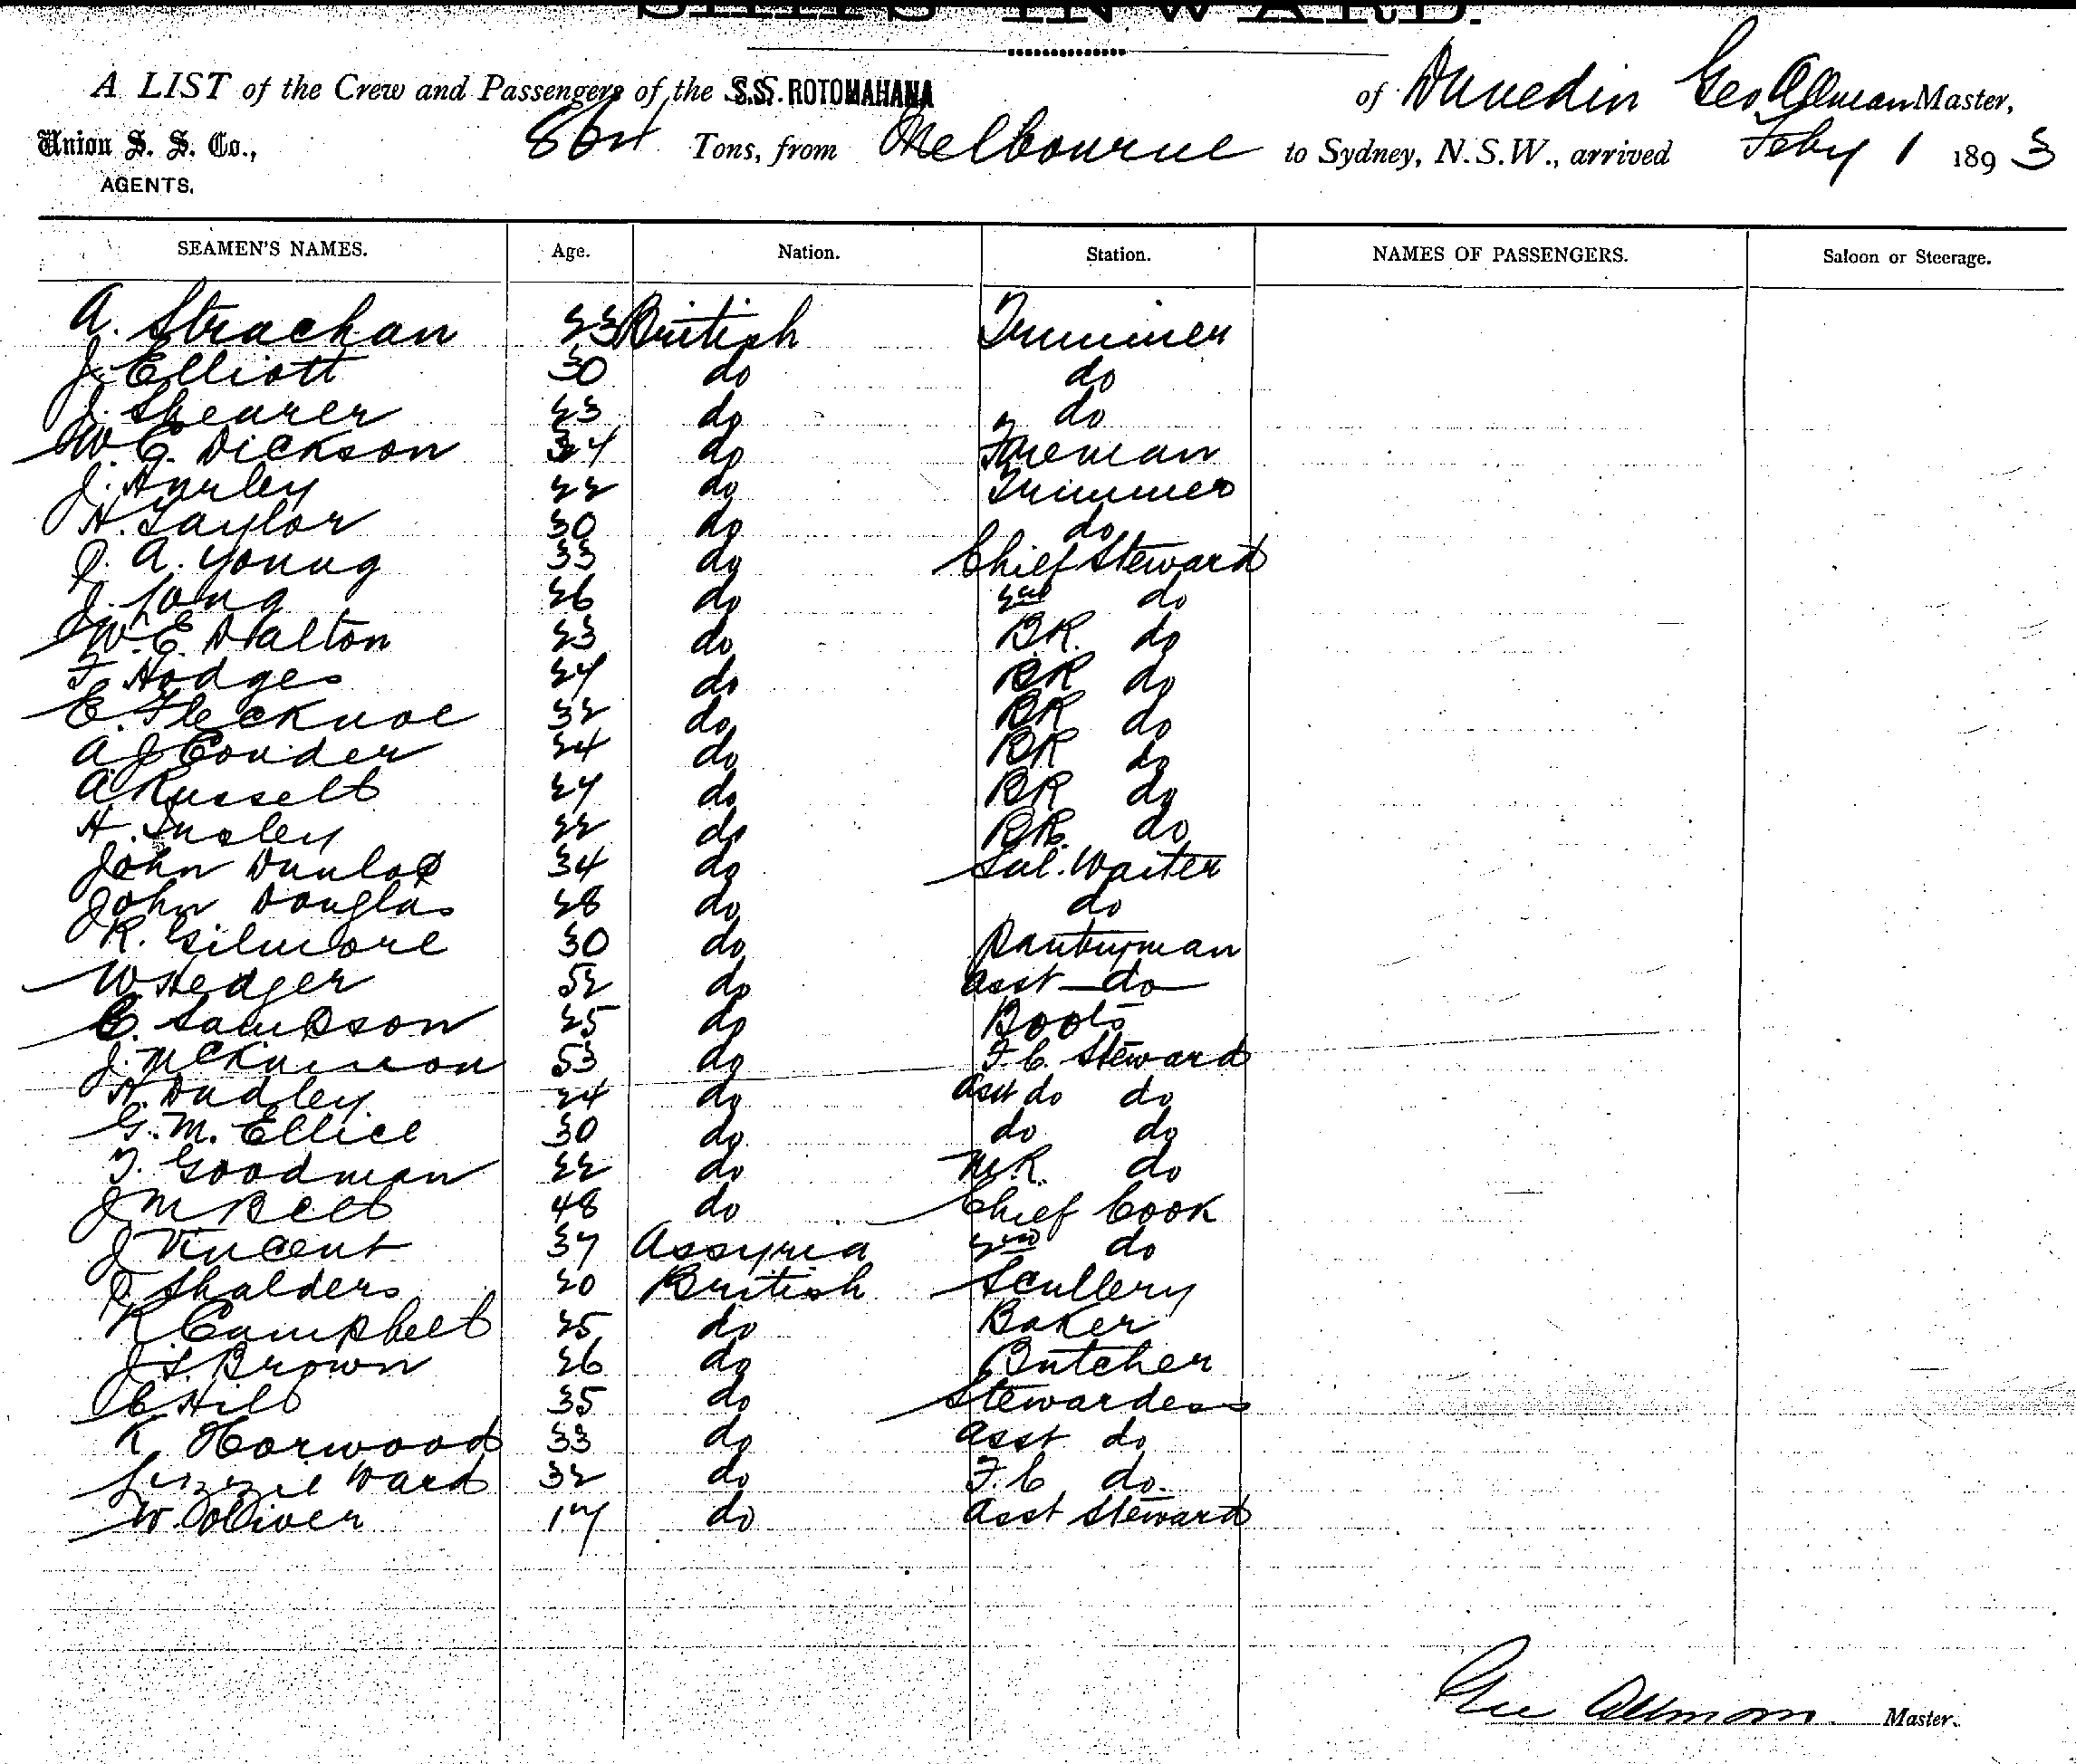 SHIPS INWARD.
A LIST of the Crew and Passengers of the S.S. ROTOMAHANA of Dunedin Geo Allman Master,
Union S. S. Co., 864 Tons, from Melbourne to Sydney, N.S.W., arrived Feby 1 1893
AGENTS.
SEAMEN'S NAMES. Age. Nation. Station. NAMES OF PASSENGERS. Saloon or Steerage.
A. Strachan 23 British Trimmer
J. Elliott 30 do do
J. Shearer 23 do do
W. E. Dickson 34 do Fireman
J. Hurley 22 do Trimmer
H. Taylor 30 do do
J. A. Young 33 do Chief Steward
J. Long 26 do 2nd do
W. E. Dalton 23 do BR. do
F Hodges 27 do BR do
E. Flecknoe 32 do BR do
A J Conder 24 do BR do
A Russell 27 do BR do
H. Insley 22 do BR. do
John Dunlop 34 do Sal. Waiter
John Douglas 28 do do
R. Gilmore 30 do Pantryman
W Hedger 52 do Asst do
C. Sampson 25 do Boots
J. McKinnon 53 do F. C. Steward
H. Dudley 24 do Asst do do
G. M. Ellice 30 do do do
T. Goodman 22 do M.R. do
J M Bell 48 do Chief Cook
J Vincent 37 Assyria 2nd do
J Shalders 20 British Scullery
R Campbell 25 do Baker
J. S. Brown 26 do Butcher
C Hill 35 do Stewardess
K Horwood 33 do Asst do
Lizzie Ward 32 do F. C do.
W. Olliver 17 do Asst Steward
Geo Allman Master.